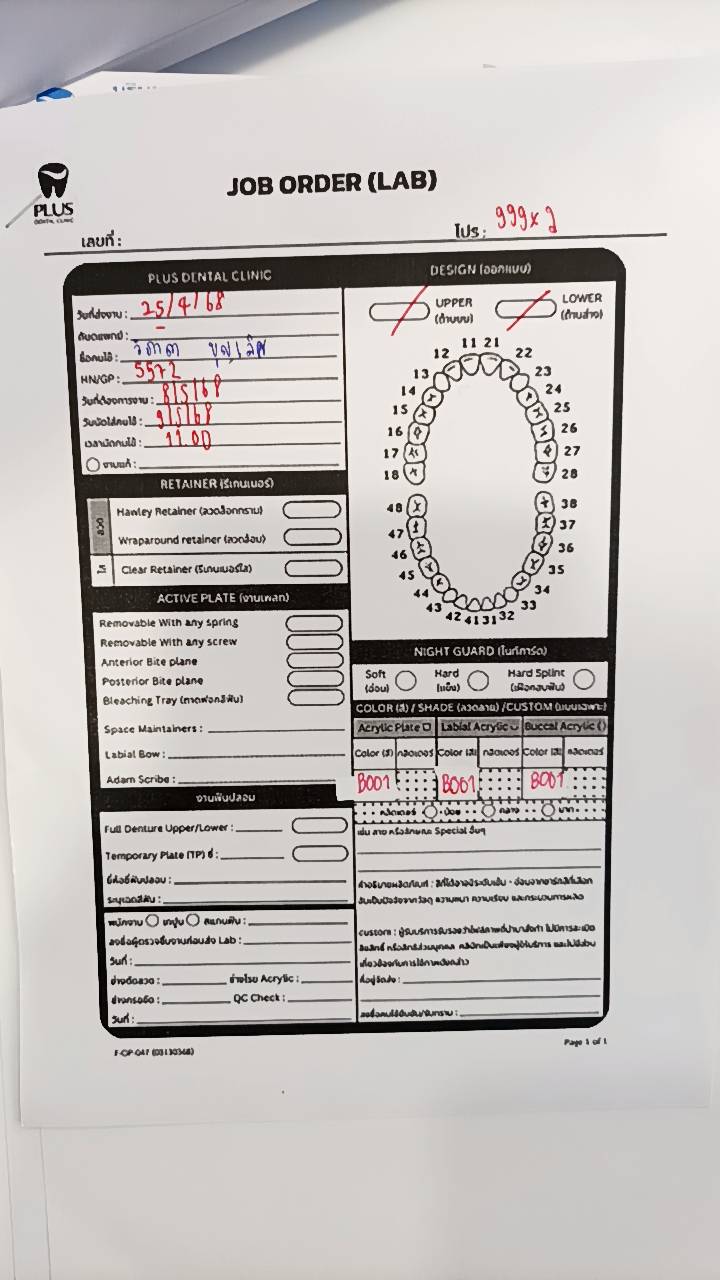 PLUS
DENTAL CLINIC
JOB ORDER (LAB)
เลขที่ :
โปร : 999x2
PLUS DENTAL CLINIC
วันที่ส่งงาน : 25/4/68
ทันตแพทย์ : -
ชื่อคนไข้ :
HN/GP : 5572
วันที่ต้องการงาน : 8/5/68
วันนัดใส่คนไข้ : 9/5/68
เวลานัดคนไข้ : 11.00
งานแก้ :
RETAINER (รีเทนเนอร์)
ลวด
Hawley Retainer (ลวดล็อกกราม)
Wraparound retainer (ลวดอ้อม)
ใส
Clear Retainer (รีเทนเนอร์ใส)
ACTIVE PLATE (งานเพลท)
Removable With any spring
Removable With any screw
Anterior Bite plane
Posterior Bite plane
Bleaching Tray (ถาดฟอกสีฟัน)
Space Maintainers :
Labial Bow :
Adam Scribe :
งานฟันปลอม
Full Denture Upper/Lower :
Temporary Plate (TP) ซี่ :
ยี่ห้อซี่ฟันปลอม :
ระบุเฉดสีฟัน :
พนักงาน พิมพ์ปูน สแกนฟัน :
ลงชื่อผู้ตรวจชิ้นงานก่อนส่ง Lab :
วันที่ :
ช่างดัดลวด : ช่างโรย Acrylic :
ช่างกรอขัด : QC Check :
วันที่ :
DESIGN (ออกแบบ)
UPPER
(ด้านบน)
LOWER
(ด้านล่าง)
11 21
12 22
13 23
14 24
15 25
16 26
17 27
18 28
48 38
47 37
46 36
45 35
44 34
43 33
42 41 31 32
NIGHT GUARD (ไนท์การ์ด)
Soft
(อ่อน)
Hard
(แข็ง)
Hard Splint
(เฝือกสบฟัน)
COLOR (สี) / SHADE (ลวดลาย) /CUSTOM (แบบเฉพาะ)
Acrylic Plate Labial Acrylic Buccal Acrylic ()
Color (สี) กลิตเตอร์ Color (สี) กลิตเตอร์ Color (สี) กลิตเตอร์
B001 B001 B001
กลิตเตอร์ น้อย กลาง มาก
เช่น ลาย หรือลักษณะ Special อื่นๆ
คำอธิบายผลิตภัณฑ์ : สีที่ได้อาจมีระดับเข้ม - อ่อนจากชาร์ทสีที่เลือก
อันเป็นปัจจัยจากวัสดุ ความหนา ความเรียบ และกระบวนการผลิต
custom : ผู้รับบริการรับรองว่าไฟล์ภาพที่นำมาสั่งทำ ไม่มีการละเมิด
ลิขสิทธิ์ หรือสิทธิส่วนบุคคล คลินิกเป็นเพียงผู้ให้บริการ และไม่มีส่วน
เกี่ยวข้องกับการใช้ภาพดังกล่าว
ที่อยู่จัดส่ง :
ลงชื่อคนไข้ยืนยัน/รับทราบ :
Page 1 of 1